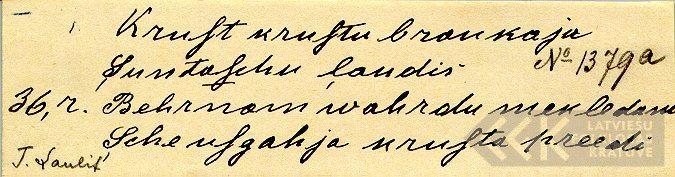 Krust krustu braukaja
Suntaschu laudis
№ 1379a
36, r. Behrnam wahrdu mekledami
Scheusgahja krusta preedi
J. Kauliṡ
LATVIEŠU
KRĀTUVE